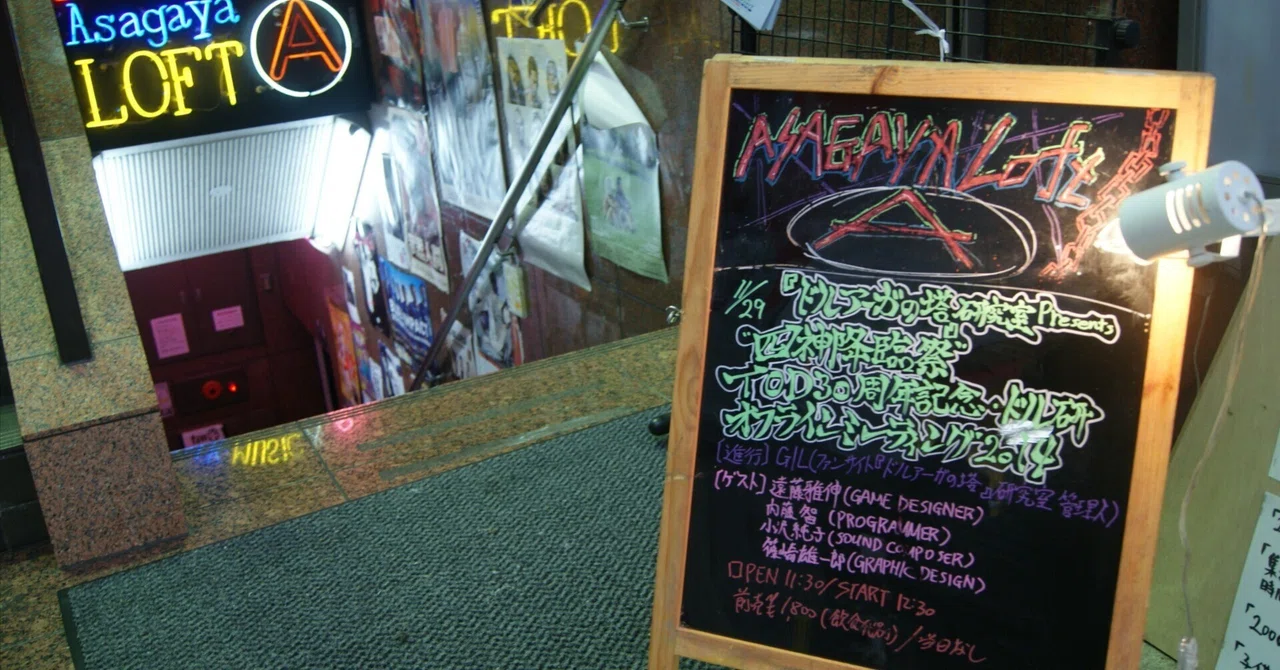 Asagaya
LOFT A
MUSIC
ASAGAYA Loft
A
11/29 『ドルアーガの塔』研究室 Presents
"四神降臨祭"
TOD30周年記念・ドル研
オフラインミーティング2014
[進行] GIL(ファンサイト『ドルアーガの塔』研究室 管理人)
[ゲスト] 遠藤雅伸(GAME DESIGNER)
内藤智(PROGRAMMER)
小沢純子(SOUND COMPOSER)
篠崎雄一郎(GRAPHIC DESIGN)
OPEN 11:30/START 12:30
前売¥1,800(飲食代別)/当日なし